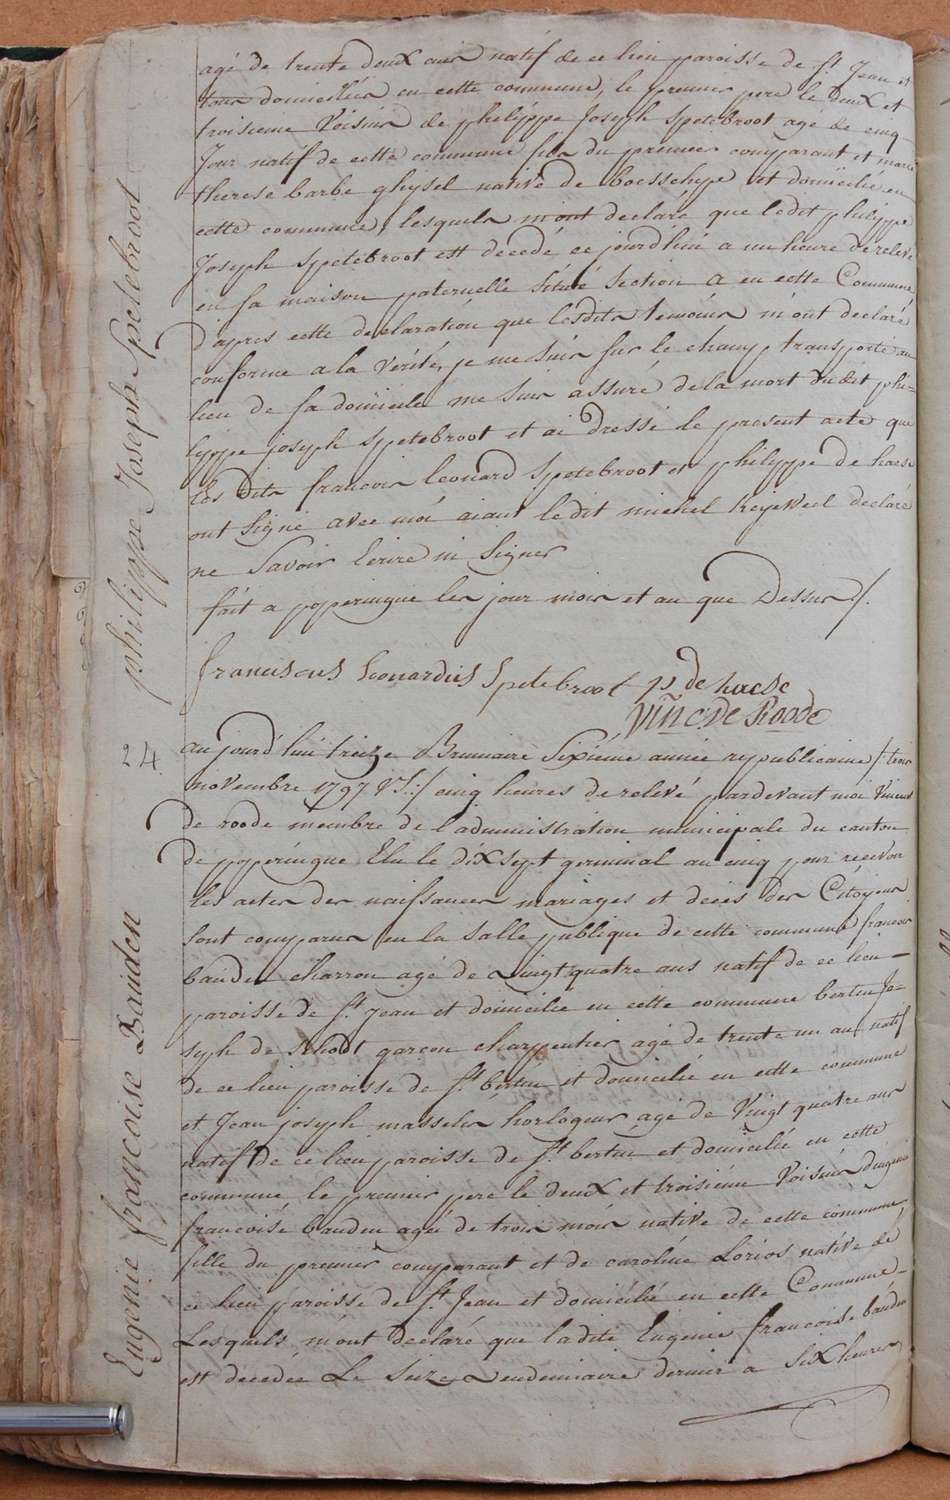 agé de trente deux ans natif de ce lieu paroisse de St. Jean et
tous domiciliés en cette commune, le premier pere le deux et
troisieme voisins de philippe Joseph Spetebroot age de cinq
Jour natif de cette commune fils du premier comparant et marie
therese barbe ghysel native de boesschepe et domiciliée en
cette commune, lesquels m'ont declaré que ledit philippe
Joseph Spetebroot est decedé ce jourd'hui a une heure de relevé
en sa maison paternelle située Section A en cette Commune,
D'apres cette declaration que lesdits temoins m'ont declaré
conforme a la verité, je me suis sur le champ transporté au
lieu de sa domicile me suis assuré de la mort dudit phi=
lippe joseph Spetebroot et ai dressé le present acte que
les dits francois leonard Spetebroot et philippe de haese
ont signé avec moi aiant ledit michel declaré
ne savoir ecrire ni signer
fait a poperingue les jour mois et an que Dessus ./.
franciscus Leonardus Spetebroot p de haese
Vinc. De Roode
philippe Joseph Spetebroot
24
aujourd'hui treize Brumaire Sixieme année republicaine /: trois
novembre 1797 VS:/ cinq heures de relevé pardevant moi Vincent
de roode membre de l'administration municipale du canton
de poperingue Elu le dix sept germinal an cinq pour recevoir
les actes des naissances mariages et décès des Citoÿens
sont comparus en la salle publique de cette commune francois
bauden charron agé de vingt quatre ans natif de ce lieu -
paroisse de St. Jean et domicilié en cette commune bertin Jo=
seph de garcon charpentier agé de trente un ans natif
de ce lieu paroisse de St. bertin et domicilié en cette commune
et Jean joseph masselis horloger agé de Vingt quatre ans
natif de ce lieu paroisse de St. bertin et domicilié en cette
commune le premier pere le deux et troisiéme Voisins d'eugenie
francoise bauden agée de trois mois native de cette commune,
fille du premier comparant et de caroline Lorios native de
ce lieu paroisse de St. Jean et domiciliée en cette Commune -
Lesquels m'ont declaré que ladite Eugenie francoise bauden
est decedée Le Seize Vendemiaire dernier a six heures
Eugenie francoise Bauden